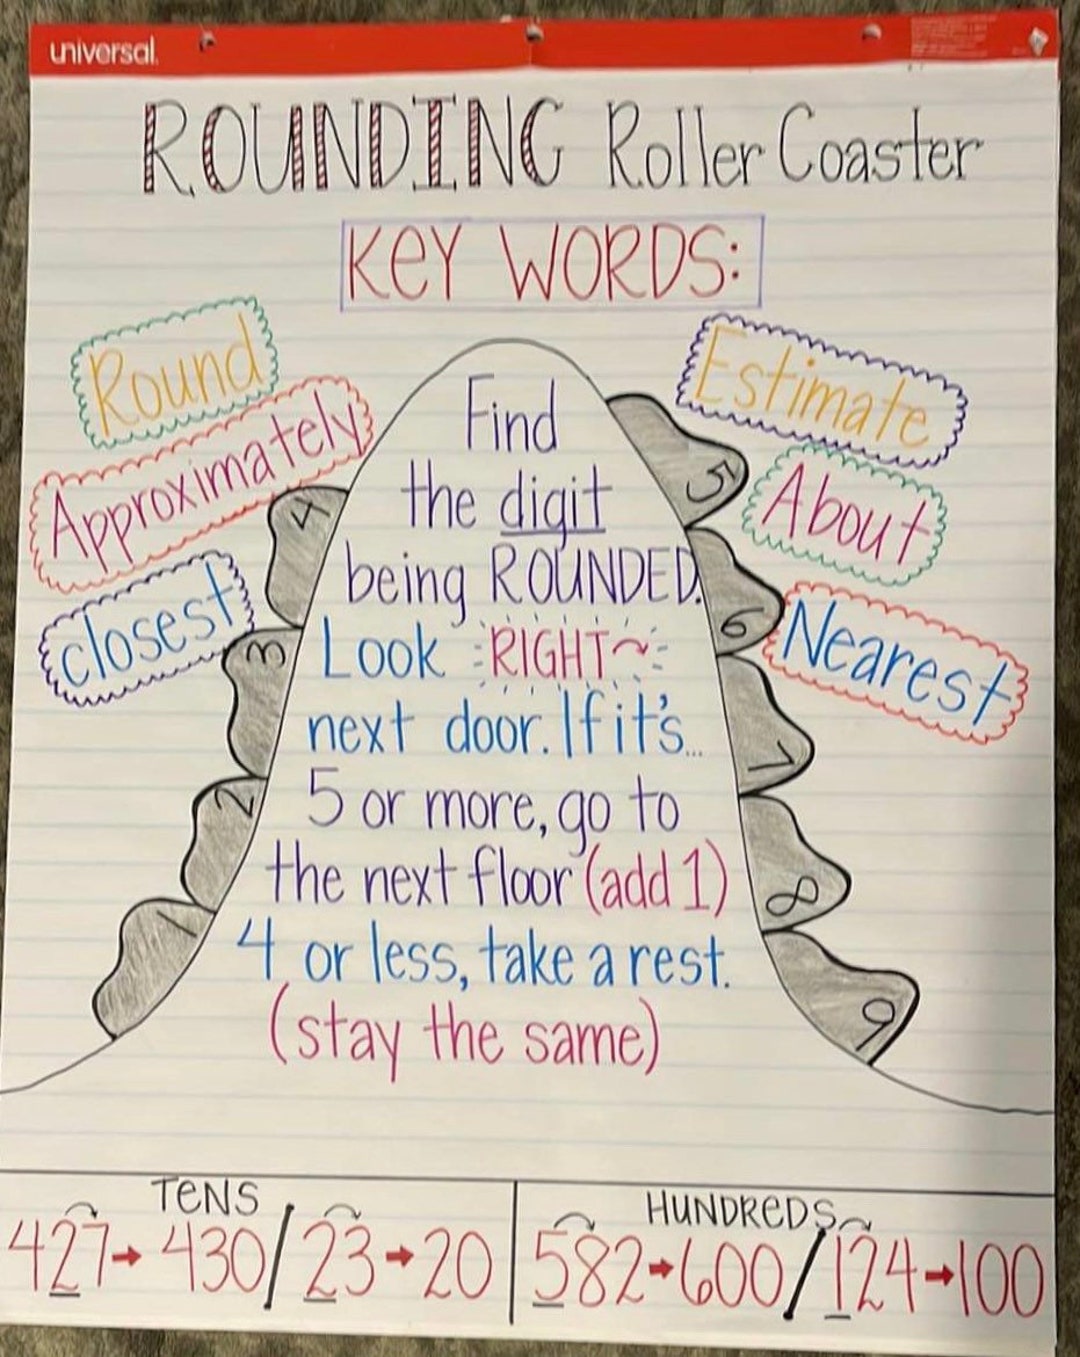 universal.
ROUNDING Roller Coaster
KEY WORDS:
Round
Approximately
closest
Estimate
About
Nearest
Find
the digit
being ROUNDED.
Look RIGHT
next door. If it's...
5 or more, go to
the next floor (add 1)
4 or less, take a rest.
(stay the same)
4
3
2
1
5
6
7
8
9
TENS
427→430/23→20
HUNDREDS
582→600/124→100